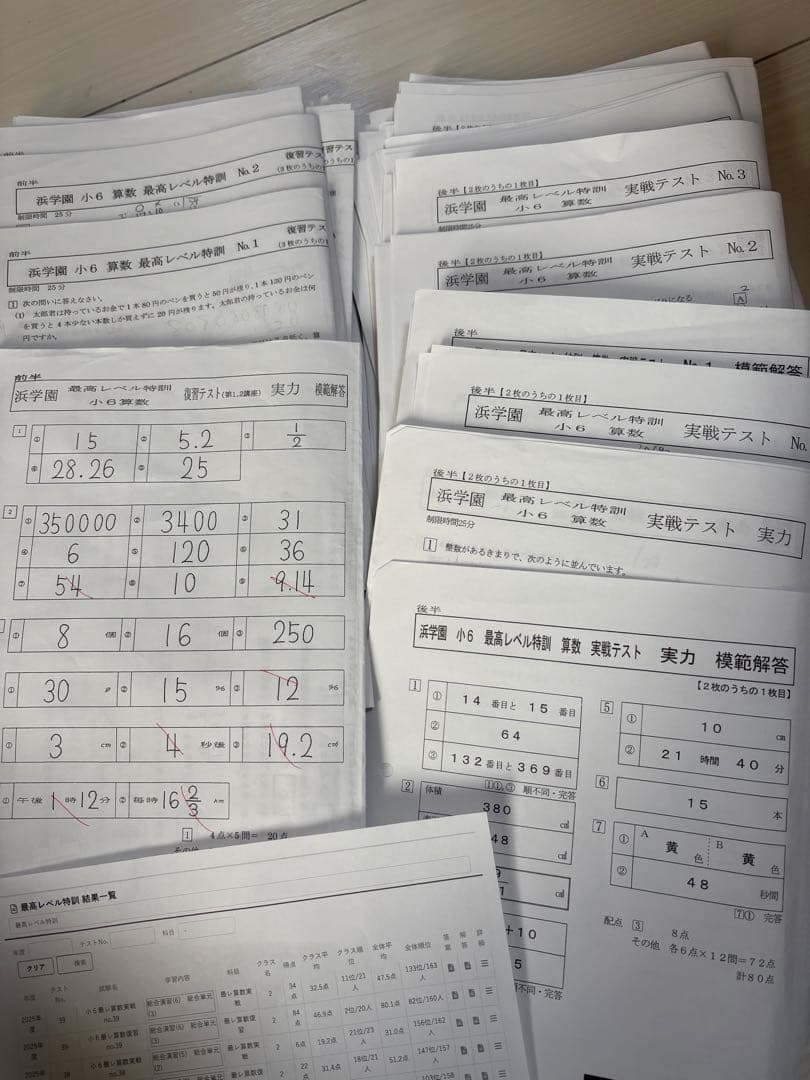 前半
浜学園 小6 算数 最高レベル特訓 No.2
復習テス
(3枚のうちの1
制限時間 25分
前半
浜学園 小6 算数 最高レベル特訓 No.1
復習テス
(3枚のうちの1
制限時間 25分
1 次の問いに答えなさい。
(1) 太郎君は持っているお金で1本80円のペンを買うと50円が残り,1本130円のペン
を買うと4本少ない本数しか買えずに20円が残ります。太郎君の持っているお金は何
円ですか。
前半
浜学園 最高レベル特訓 小6算数 復習テスト(第1,2講座) 実力 模範解答
1 ① 15 ② 5.2 ③ 1/2
④ 28.26 ⑤ 25
2 ① 350000 ② 3400 ③ 31
④ 6 ⑤ 120 ⑥ 36
⑦ 54 ⑧ 10 ⑨ 9.14
① 8 個 ② 16 個 ③ 250
① 30 ② 15 % ③ 12 %
① 3 cm ② 4 秒後 ③ 19.2
① 午後 1時12分 ② 毎時 16 2/3 km
1 4点×5問= 20点
その他
後半【2枚のうちの1枚目】
浜学園 最高レベル特訓 小6 算数 実戦テスト No.3
制限時間25分
後半【2枚のうちの1枚目】
浜学園 最高レベル特訓 小6 算数 実戦テスト No.2
後半
No.1 模範解答
後半【2枚のうちの1枚目】
浜学園 最高レベル特訓 小6 算数 実戦テスト No.
後半【2枚のうちの1枚目】
浜学園 最高レベル特訓 小6 算数 実戦テスト 実力
制限時間25分
1 整数があるきまりで、次のように並んでいます。
後半
浜学園 小6 最高レベル特訓 算数 実戦テスト 実力 模範解答
【2枚のうちの1枚目】
1 ① 14 番目と 15 番目
② 64
③ 132番目と369番目
①①,③ 順不同・完答
2 体積 380
48
+10
5
順不同・完答
5 ① 10 cm
② 21 時間 40 分
6 15 本
7 ① A 黄 色 B 黄 色
② 48 秒間
⑦① 完答
配点 3 8点
その他 各6点×12問=72点
計80点
最高レベル特訓 結果一覧
最高レベル特訓
年度 テストNo. 科目 -
クリア 検索
年度 テストNo. 試験名 学習内容 科目 クラス名 得点 クラス平均 クラス順位 全体平均 全体順位 答案 解答 詳細
2025年度 39 小6最レ算数実戦no.39 総合演習(6) 総合単元(3) 最レ算数実戦 2 34点 32.5点 11位/21人 47.5点 133位/163人
2025年度 39 小6最レ算数復習no.39 総合演習(6) 総合単元(3) 最レ算数復習 2 84点 46.9点 2位/20人 80.1点 82位/160人
2025年度 38 小6最レ算数実戦 総合演習(5) 総合単元(2) 最レ算数実戦 2 6点 19.2点 21位/23人 31.0点 156位/162人
総合演習(5) 総合単元 最レ算数復 2 22点 31.4点 18位/21人 51.2点 147位/157人
103位/158